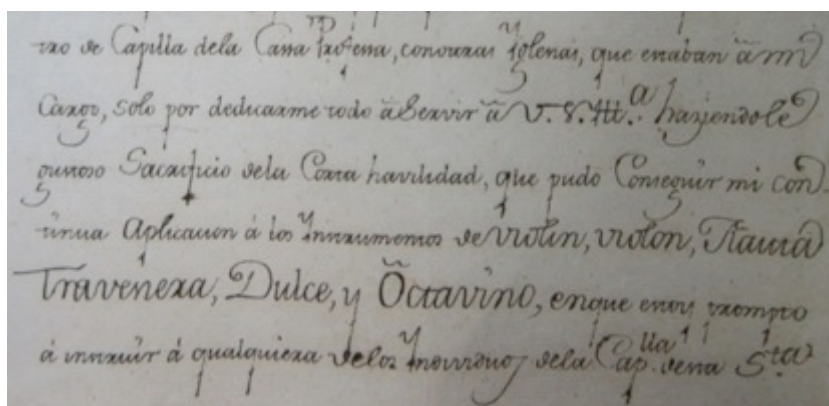 tro de Capilla dela Casa Professa, conotras Yglesias, que estaban â mi
Cargo, solo por dedicarme todo â Servir â V. S. Ill.ª haziendole
gustoso Sacrificio dela Corta havilidad, que pudo Conseguir mi con
tinua Aplicacion á los Ynstrumentos de violin, violon, Flauta
Travesera, Dulce, y Octavino, enque estoy prompto
á instruir á qualquiera delos Yndividuos dela Cap.lla desta S.ta